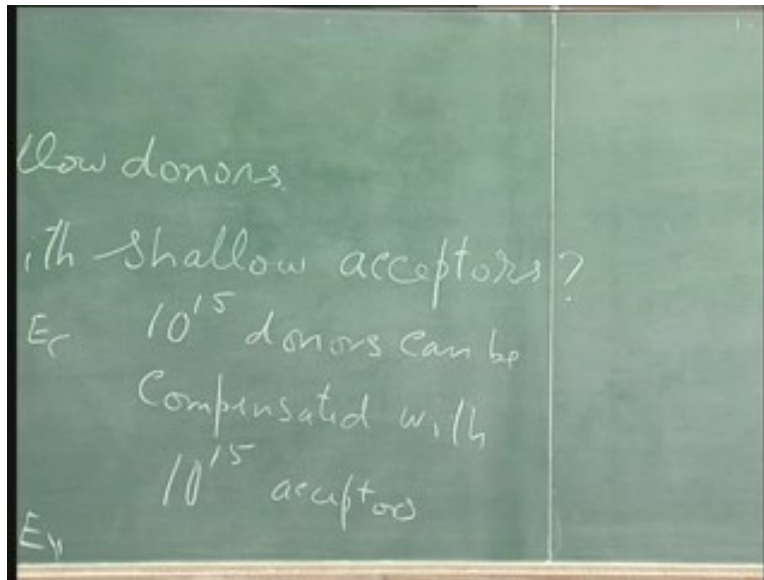 llow donors
ith shallow acceptors?
Ec 10¹⁵ donors can be
Compensated with
10¹⁵ acceptors
Ev